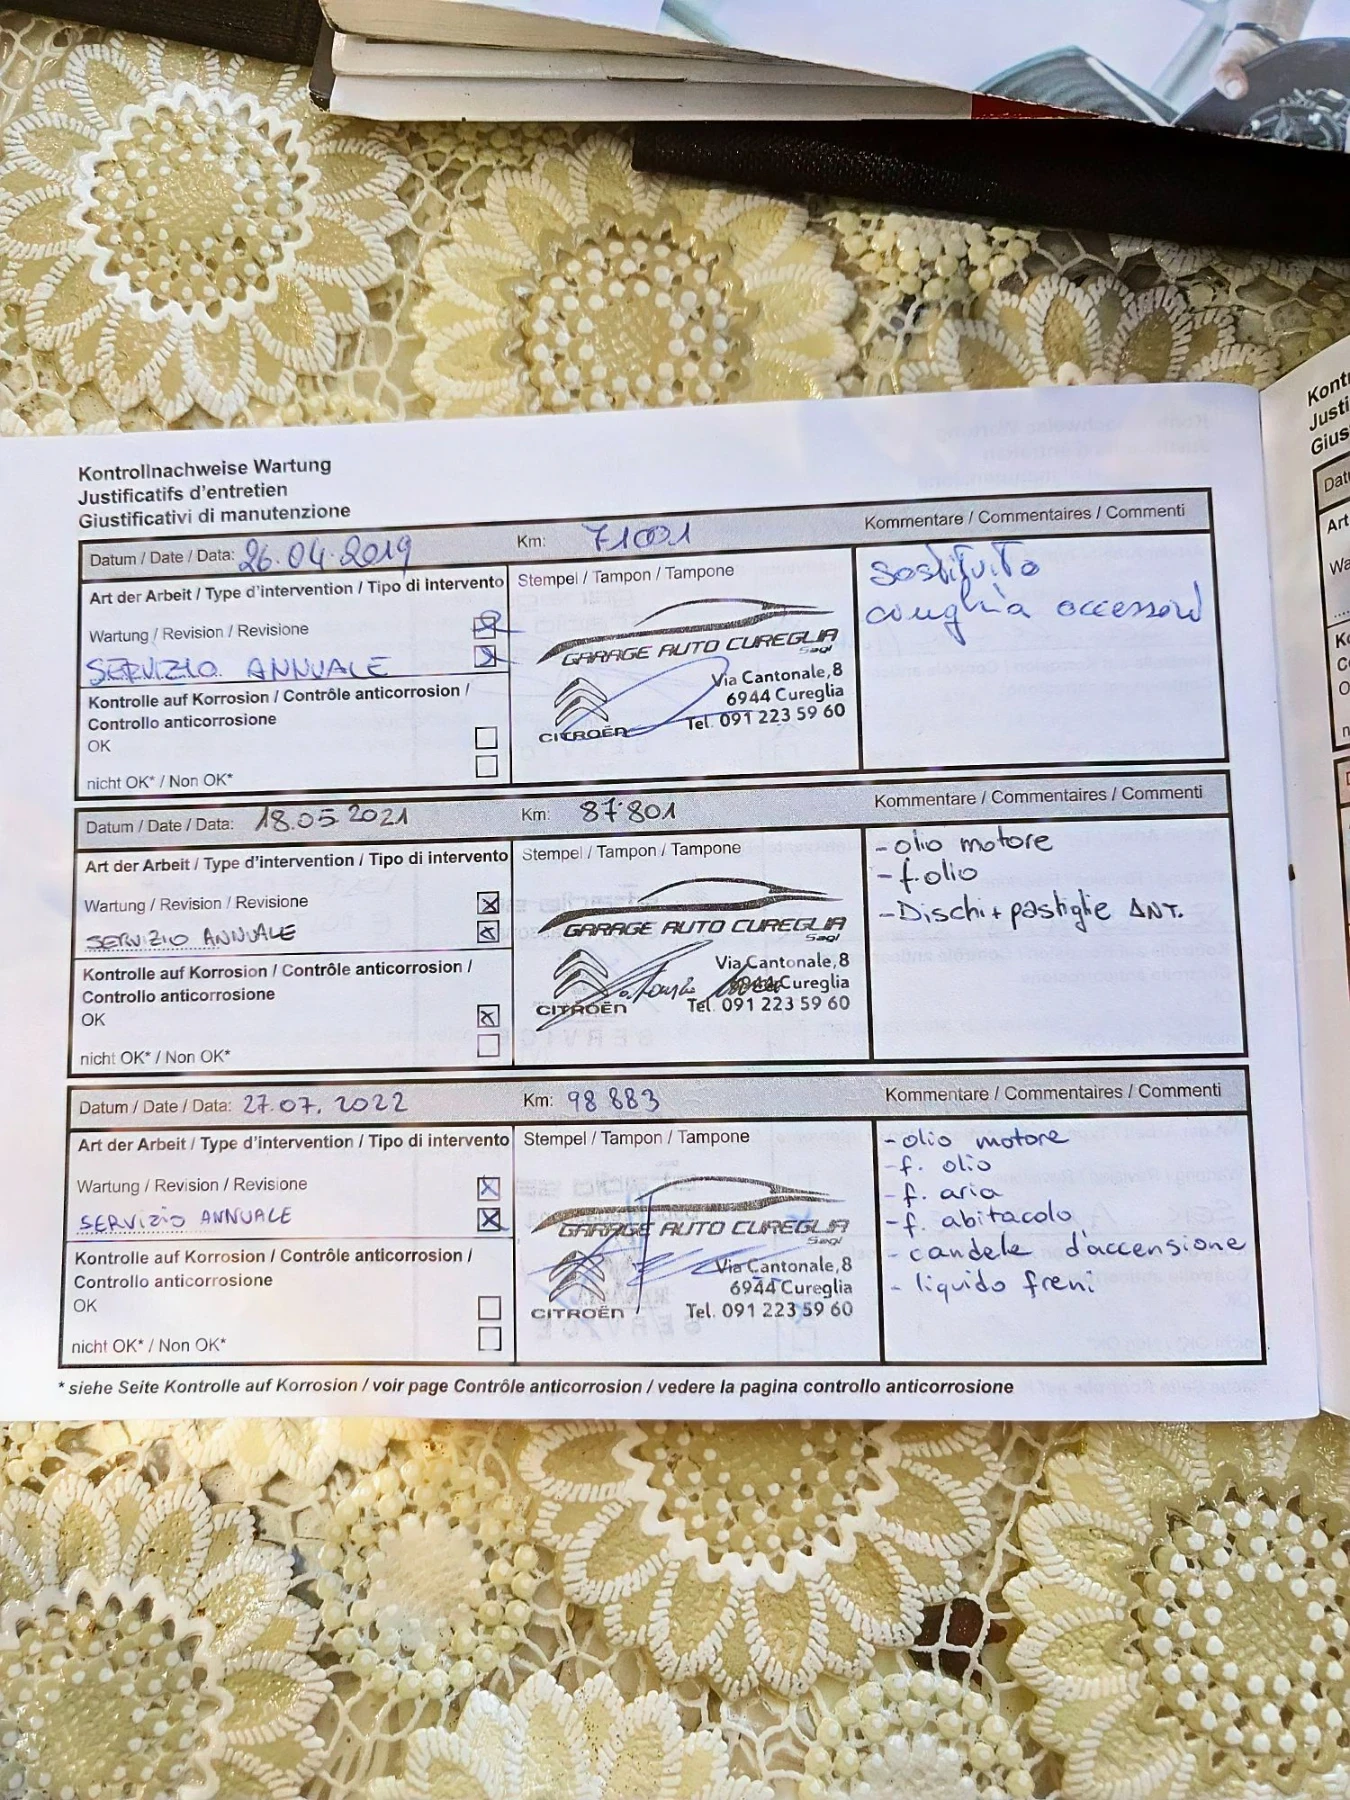 Kontrollnachweise Wartung
Justificatifs d'entretien
Giustificativi di manutenzione
Datum / Date / Data: 26.04.2019 Km: 71001 Kommentare / Commentaires / Commenti
Art der Arbeit / Type d'intervention / Tipo di intervento Stempel / Tampon / Tampone
Sostituito
cinghia accessori
Wartung / Revision / Revisione
SERVIZIO ANNUALE
GARAGE AUTO CUREGLIA
Sagl
Via Cantonale,8
6944 Cureglia
Tel. 091 223 59 60
CITROËN
Kontrolle auf Korrosion / Contrôle anticorrosion /
Controllo anticorrosione
OK
nicht OK* / Non OK*
Datum / Date / Data: 18.05.2021 Km: 87'801 Kommentare / Commentaires / Commenti
Art der Arbeit / Type d'intervention / Tipo di intervento Stempel / Tampon / Tampone
- olio motore
- f. olio
- Dischi + pastiglie ANT.
Wartung / Revision / Revisione
SERVIZIO ANNUALE
GARAGE AUTO CUREGLIA
Sagl
Via Cantonale,8
6944 Cureglia
Tel. 091 223 59 60
CITROËN
Kontrolle auf Korrosion / Contrôle anticorrosion /
Controllo anticorrosione
OK
nicht OK* / Non OK*
Datum / Date / Data: 27.07.2022 Km: 98 883 Kommentare / Commentaires / Commenti
Art der Arbeit / Type d'intervention / Tipo di intervento Stempel / Tampon / Tampone
- olio motore
- f. olio
- f. aria
- f. abitacolo
- candele d'accensione
- liquido freni
Wartung / Revision / Revisione
SERVIZIO ANNUALE
GARAGE AUTO CUREGLIA
Sagl
Via Cantonale,8
6944 Cureglia
Tel. 091 223 59 60
CITROËN
Kontrolle auf Korrosion / Contrôle anticorrosion /
Controllo anticorrosione
OK
nicht OK* / Non OK*
* siehe Seite Kontrolle auf Korrosion / voir page Contrôle anticorrosion / vedere la pagina controllo anticorrosione